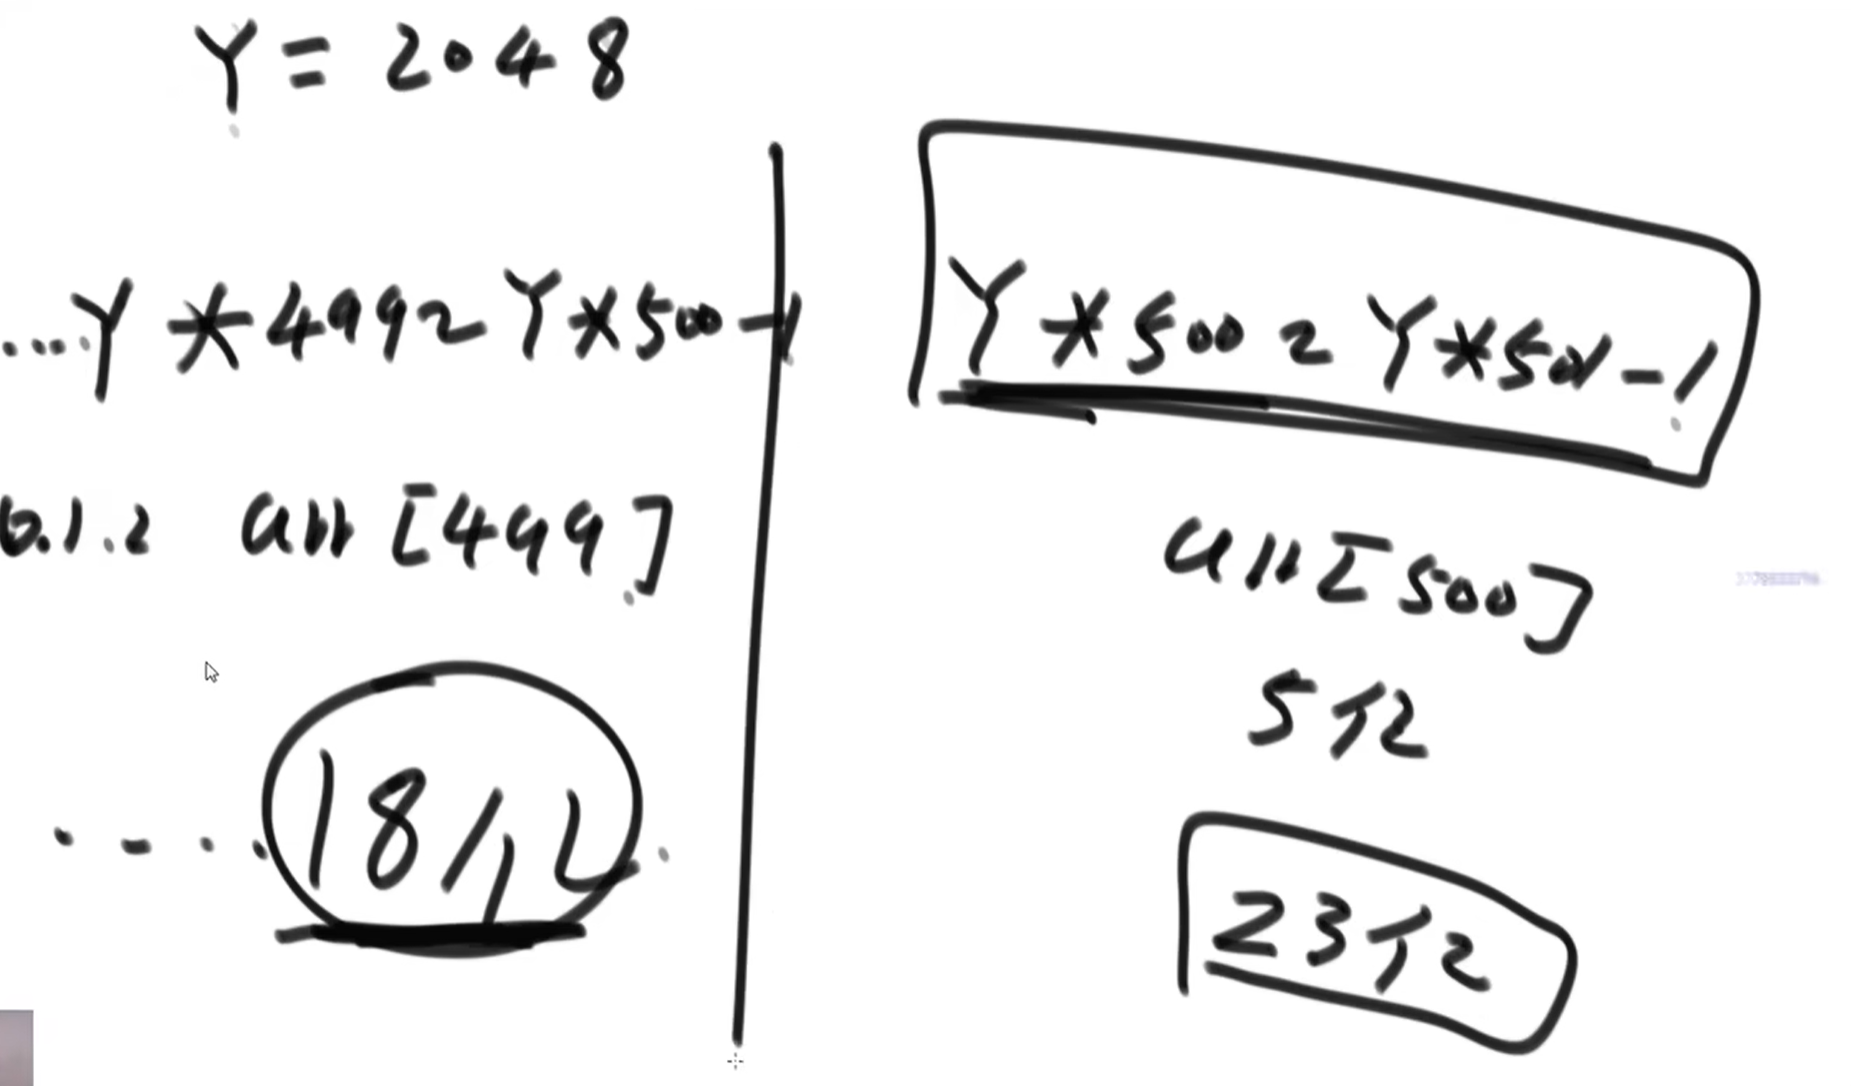 Y = 2048
....Y * 499 ~ Y * 500 - 1
0.1.2 arr [499]
18亿
Y * 500 ~ Y * 501 - 1
arr[500]
5亿
23亿